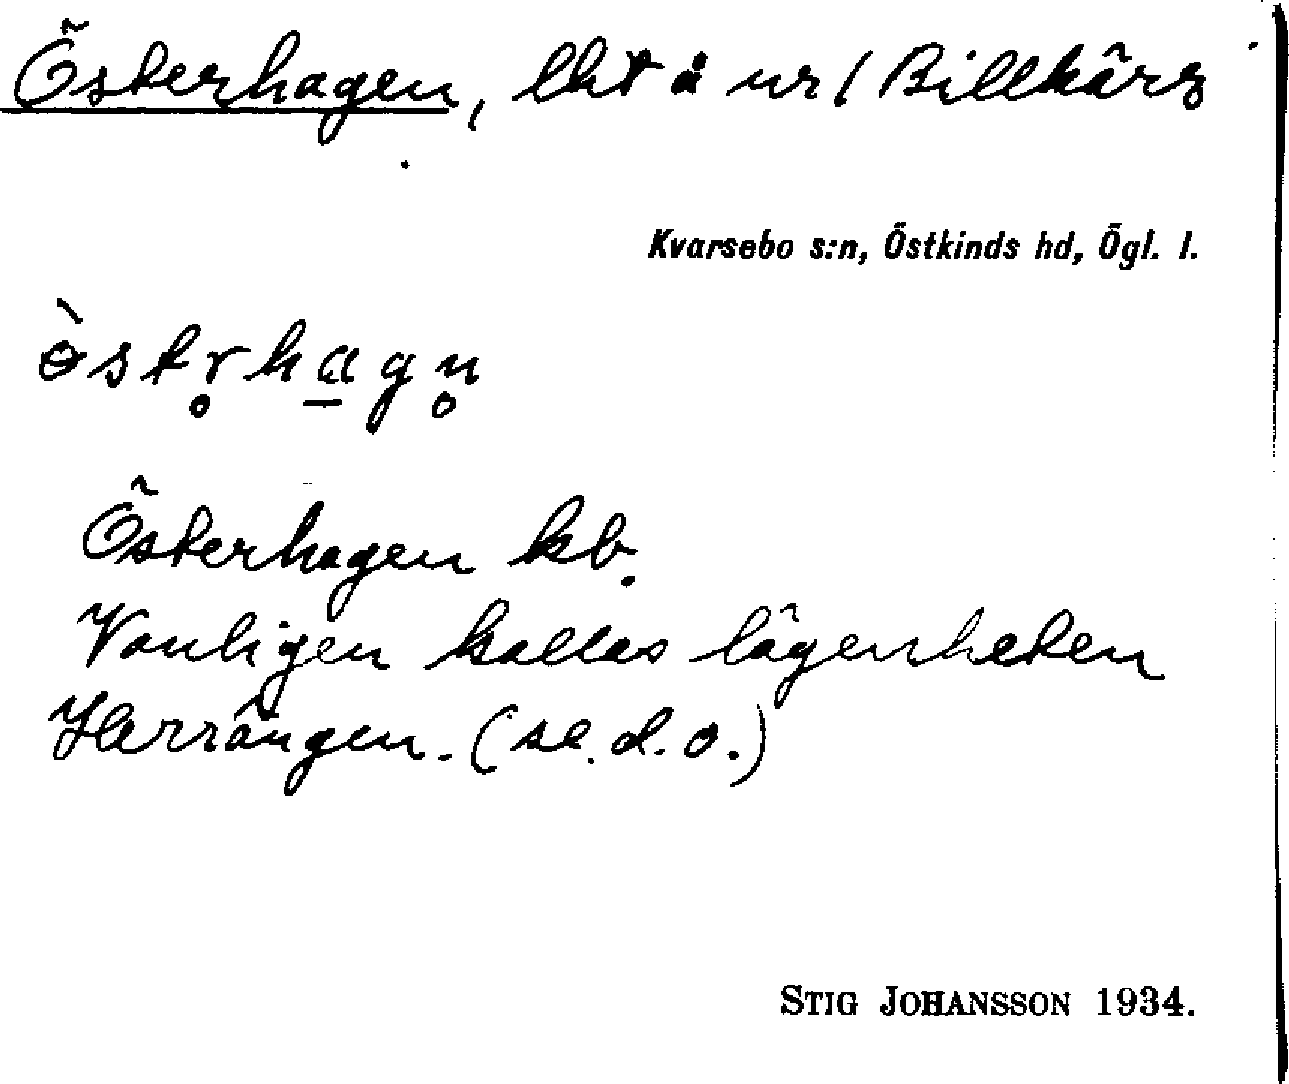 Österhagen, lht å ur / Billkärs
Kvarsebo s:n, Östkinds hd, Ögl. l.
ὸstr̥ha̲gn̥
Österhagen kb.
Vanligen kallas lägenheten
Herrängen. (se. d. o.)
STIG JOHANSSON 1934.